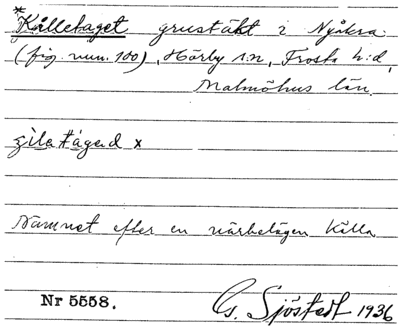 *Källetaget grustäkt i Nyåkra
(fig. num. 100), Hörby s:n, Frosta h:d,
Malmöhus län.
x
Namnet efter en närbelägen källa
Nr 5558. G. Sjöstedt 1936